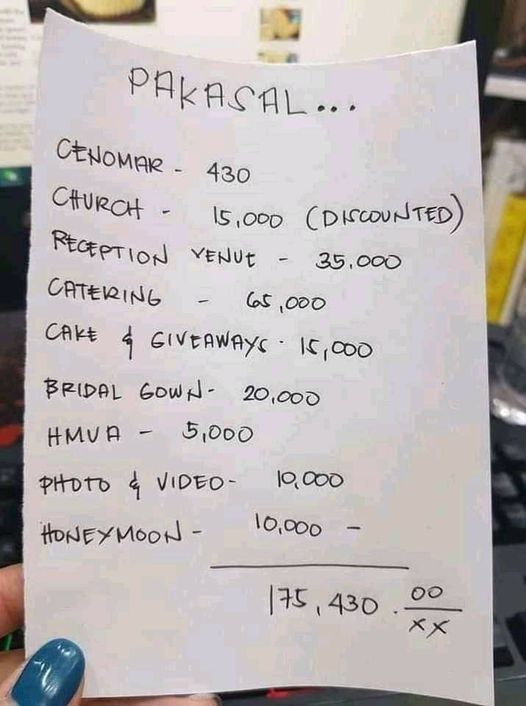 PAKASAL...
CENOMAR - 430
CHURCH - 15,000 (DISCOUNTED)
RECEPTION VENUE - 35,000
CATERING - 65,000
CAKE & GIVEAWAYS - 15,000
BRIDAL GOWN - 20,000
HMUA - 5,000
PHOTO & VIDEO - 10,000
HONEYMOON - 10,000 -
175,430.00/XX